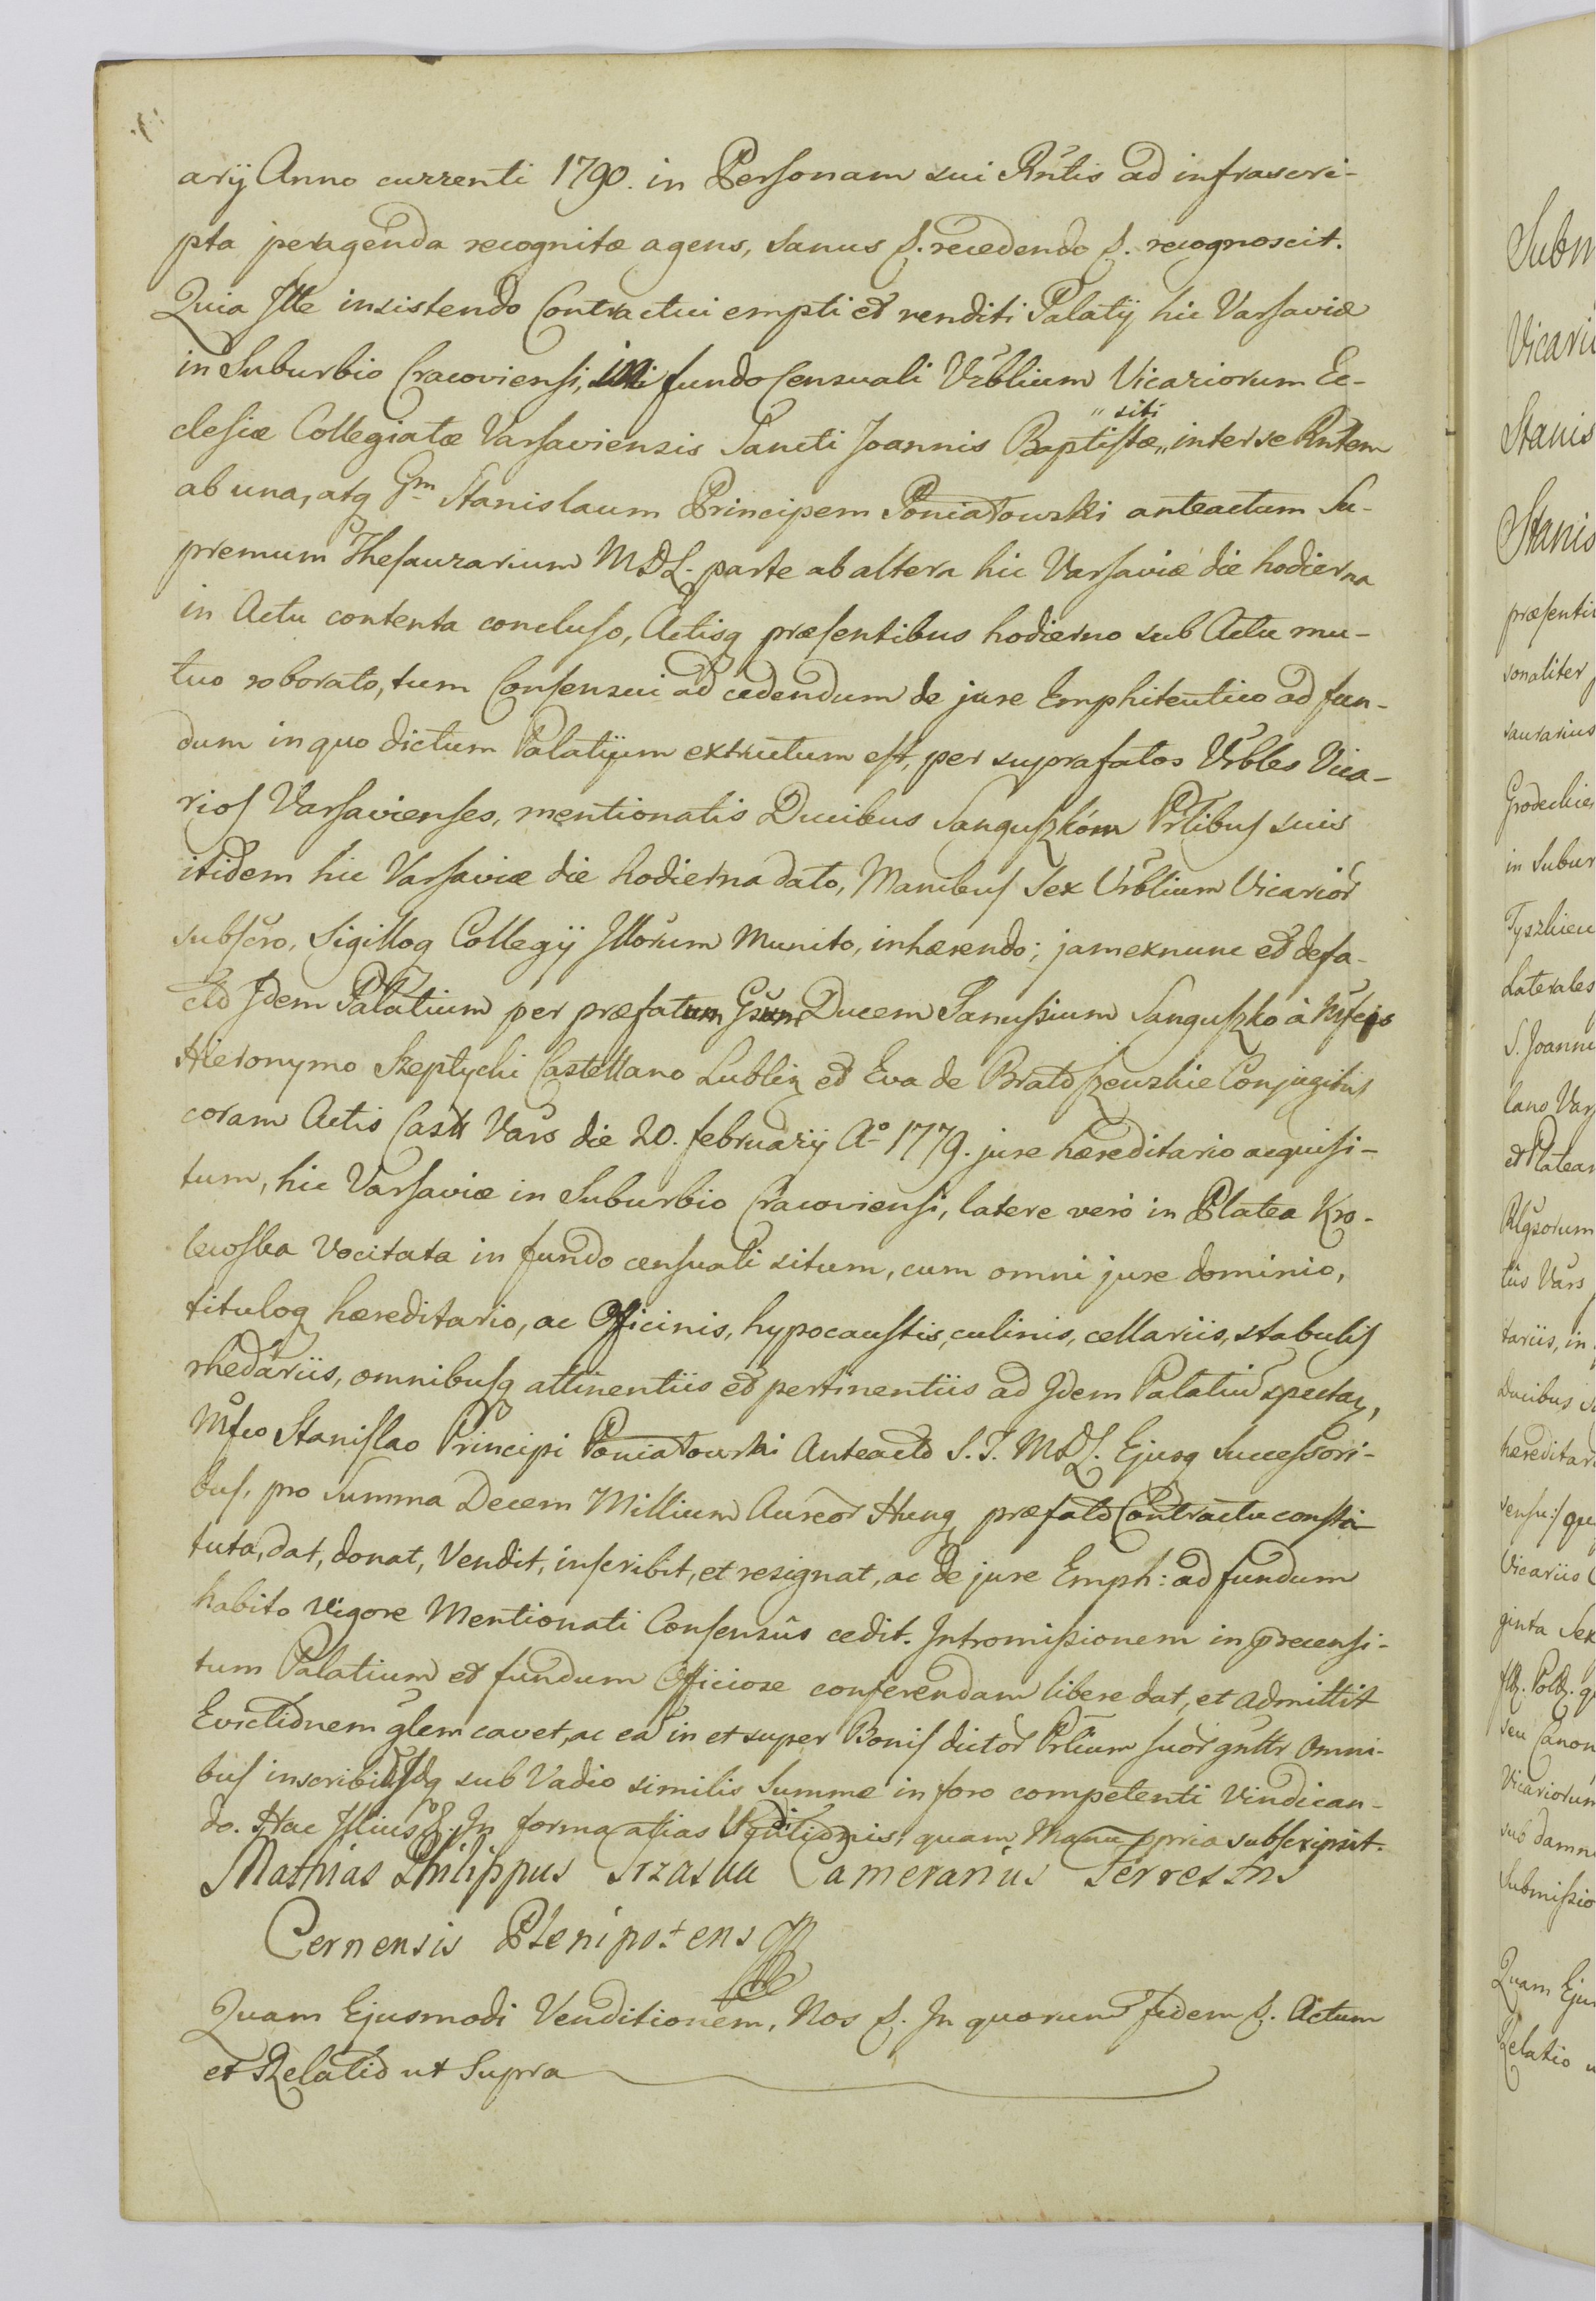 arij Anno currenti 1790. in Personam sui Rntis ad infrascri-
pta peragenda recognitæ agens, sanus &. recedendo &. recognoscit.
Quia Ille insistendo Contractui empti et venditi Palatij hic Varsaviæ
in Suburbio Cracoviensi, in fundo Censuali Vrblium Vicariorum Ec-
clesiæ Collegiatæ Varsaviensis Sancti Joannis Baptistæ „ siti „ inter se Rntem
ab una, atq Gm Stanislaum Principem Poniatowski anteactum Su-
premum Thesaurarium MDL. parte ab altera hic Varsaviæ die hodierna
in Actu contenta concluso, Actisq præsentibus hodierno sub Actu mu-
tuo roborato, tum Consensui ad cedendum de jure Emphiteutico ad fun-
dum in quo dictum Palatijum extructum est, per suprafatos Vrbles Vica-
rios Varsavienses, mentionatis Ducibus Sanguszkom Prlibus suis
itidem hic Varsaviæ die hodierna dato, Manibus Sex Vrblium Vicarior
subscro, Sigilloq Collegij Illorum Munito, inhærendo; jam ex nunc et de fa-
cto Idem Palatium per præfatum Gsum Ducem Janussium Sanguszko à Mfcis
Hieronymo Szeptycki Castellano Lublin et Eva de Bratoszewskie Conjugibus
coram Actis Castr Vars die 20. februarij Ao 1779. jure hæreditario acquisi-
tum, hic Varsaviæ in Suburbio Cracoviensi, latere verò in Platea Kro-
lewska Vocitata in fundo censuali situm, cum omni jure dominio,
tituloq hæreditario, ac Officinis, hypocaustis, culinis, cellariis, stabulis
rhedariis, omnibusq attinentiis et pertinentiis ad Idem Palatiu spectan,
Mfco Stanislao Principi Poniatowski Anteacto S. T. MDL. Ejusq Successori-
bus, pro Summa Decem Millium Aureor Hung præfato Contractu consti-
tuta, dat, donat, Vendit, inscribit, et resignat, ac de jure Emph: ad fundum
habito vigore Mentionati Consensûs cedit. Intromissionem in præcensi-
tum Palatium et fundum Officiose conferendam libere dat, et admittit
Evictionem glem cavet, ac ea in et super Bonis dictor Prlium suor gnltr omni-
bus inscribit Idq sub Vadio similis Summæ in foro competenti Vindican-
do. Hac Illius &. In forma alias Venditionis: quam Manu ppria subscripsit.
Mathias Philippus Cameranus Terrestris
Cernensis Plenipotens
Quam Ejusmodi Venditionem, Nos &. In quorum fidem &. Actum
et Relatio ut Supra